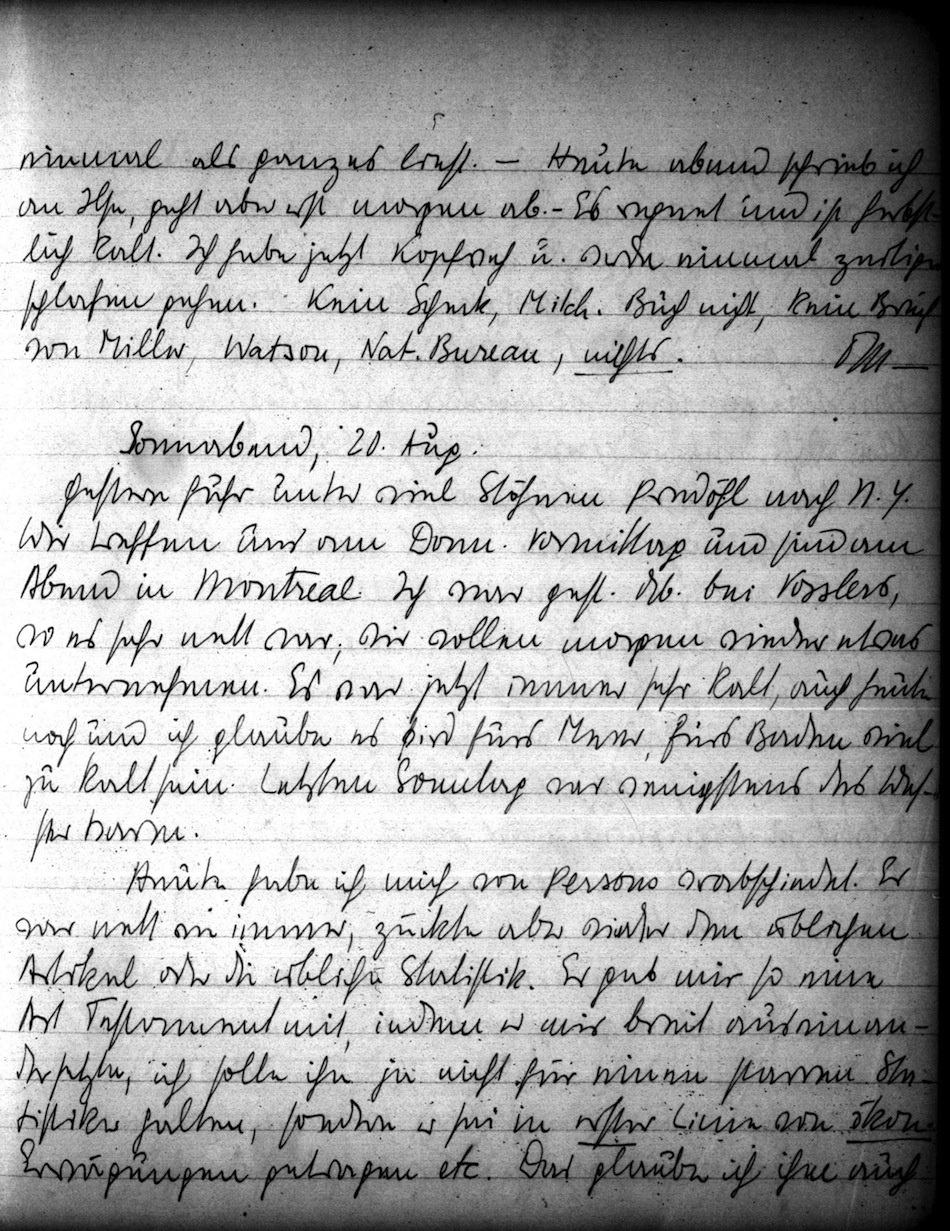 einmal als ganzes liest. — Heute abend schrieb ich
an Ilse, geht aber erst morgen ab. - Es regnet und ist herbst-
lich kalt. Ich habe jetzt Kopfweh u. werde einmal zeitig
schlafen gehen. Kein Scheck, Mitch. Buch nicht, kein Brief
von Miller, Watson, Nat. Bureau, nichts.
Sonnabend, 20. Aug.
Gestern fuhr unter viel Stöhnen Predöhl nach N. Y.
Wir treffen uns am Donn. Vormittag und sind am
Abend in Montreal. Ich war gest. Ab. bei Vosslers,
wo es sehr nett war; wir wollen morgen wieder etwas
unternehmen. Es war jetzt immer sehr kalt, auch heute
noch und ich glaube es wird fürs Meer, fürs Baden viel
zu kalt sein. Letzten Sonntag war wenigstens das Was-
ser warm.
Heute habe ich mich von Persons verabschiedet. Er
war nett wie immer, zückte aber wieder den üblichen
Artikel oder die übliche Statistik. Er gab mir so eine
Art Testament mit, indem er mir breit auseinan-
dersetzte, ich solle ihn ja nicht für einen starren Sta-
tistiker halten, sondern er sei in erster Linie von ökon.
Erwägungen getragen etc. Das glaube ich ihm auch